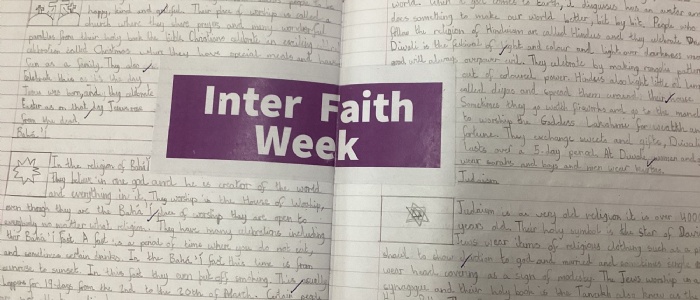 happy, kind and joyful. Their place of worship is called a
church where they share prayers and many wonderful
parables from their holy book the bible. Christians celebrate an exciting
celebration called Christmas when they have special meals and
fun as a family. They also
celebrate this as it's the day
Jesus was born and they celebrate
Easter as on that day Jesus rose
from the dead.
Bahá'í
In the religion of Bahá'í
They believe in one god and he is creator of the world
and everything in it. They worship in the House of Worship,
even though they are the Bahá'í place of worship they are open to
no matter what religion. They have many celebrations including
the Bahá'í fast. A fast is a period of time where you do not eat,
and sometimes certain drinks. In the Bahá'í fast this time is from
sunrise to sunset. In this fast they even put off smoking. This usually
happens for 19 days from the 2nd to the 20th of March. Certain people
Inter Faith
Week
world. When a god comes to Earth, in disguise, has an avatar
does something to make our world better, bit by bit. People who
follow the religion of Hinduism are called Hindus and they celebrate
Diwali is the festival of light and colour and light over darkness
and will always overpower evil. They celebrate by making rangoli
out of coloured powder. Hindus also light little oil lamps
called diyas and spread them around their homes.
Sometimes they go watch fireworks and go to the mandir
to worship the Goddess Lakshmi for wealth
fortune. They exchange sweets and gifts, Diwali
lasts over a 5-day period. At Diwali women
wear and men wear
Judaism
Judaism is a very old religion it is over 4000
years old. Their holy symbol is the star of David
Jews wear items of religious clothing such as a
shawl to show devotion to god and married and sometimes single
wear head covering as a sign of modesty. The Jews worship in
synagogue and their holy book is the